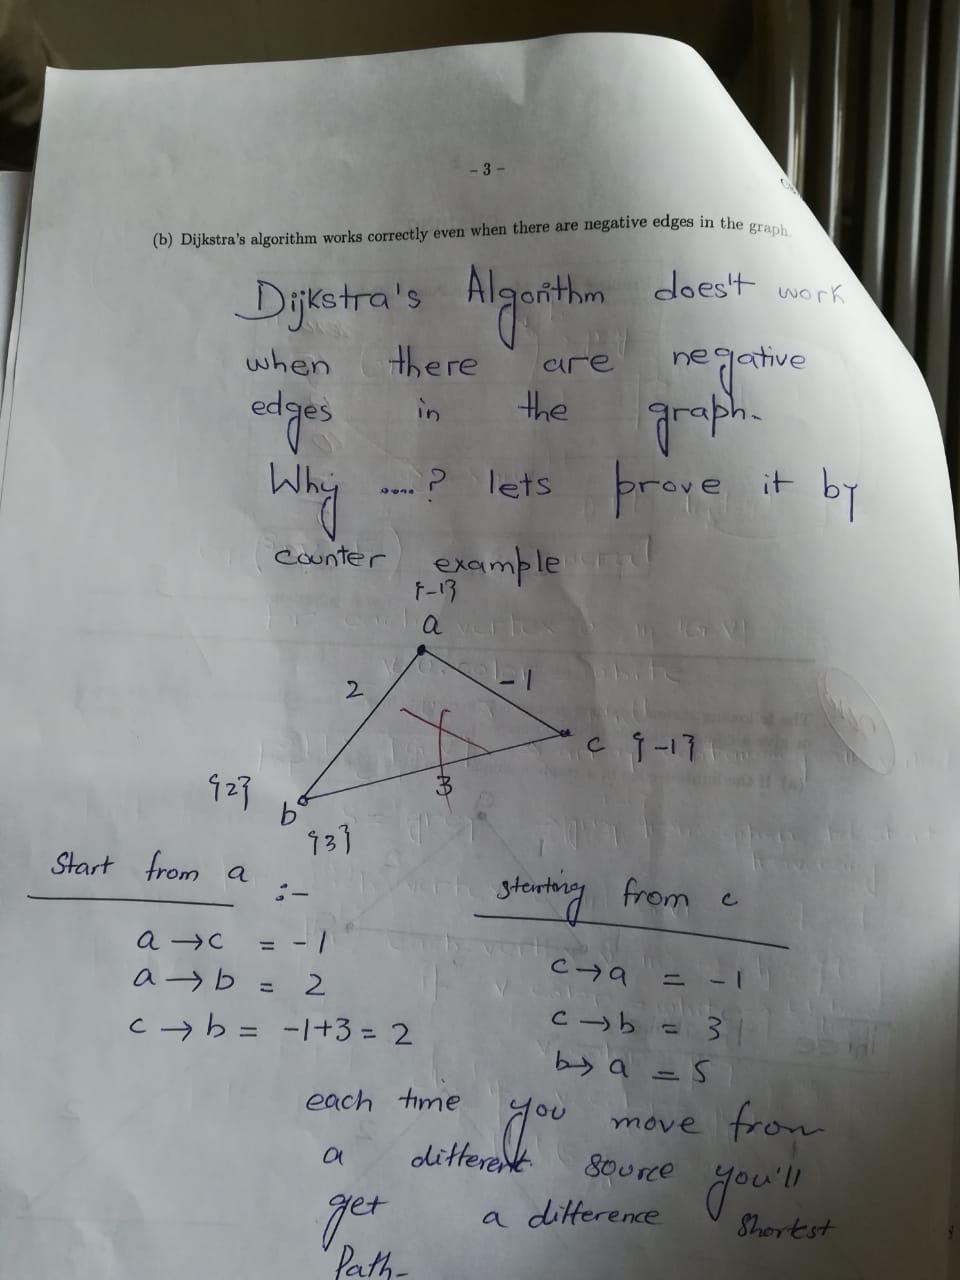 - 3 -
(b) Dijkstra's algorithm works correctly even when there are negative edges in the graph.
Dijkstra's Algorithm does't work
when there are negative
edges in the graph.
Why ....? lets prove it by
counter example
{-1}
a
2
-1
c {-1}
3
{2}
b
{3}
Start from a :-
a → c = -1
a → b = 2
c → b = -1+3 = 2
starting from c
c → a = -1
c → b = 3
b → a = 5
each time you move from
a different source you'll
get a difference shortest
Path-